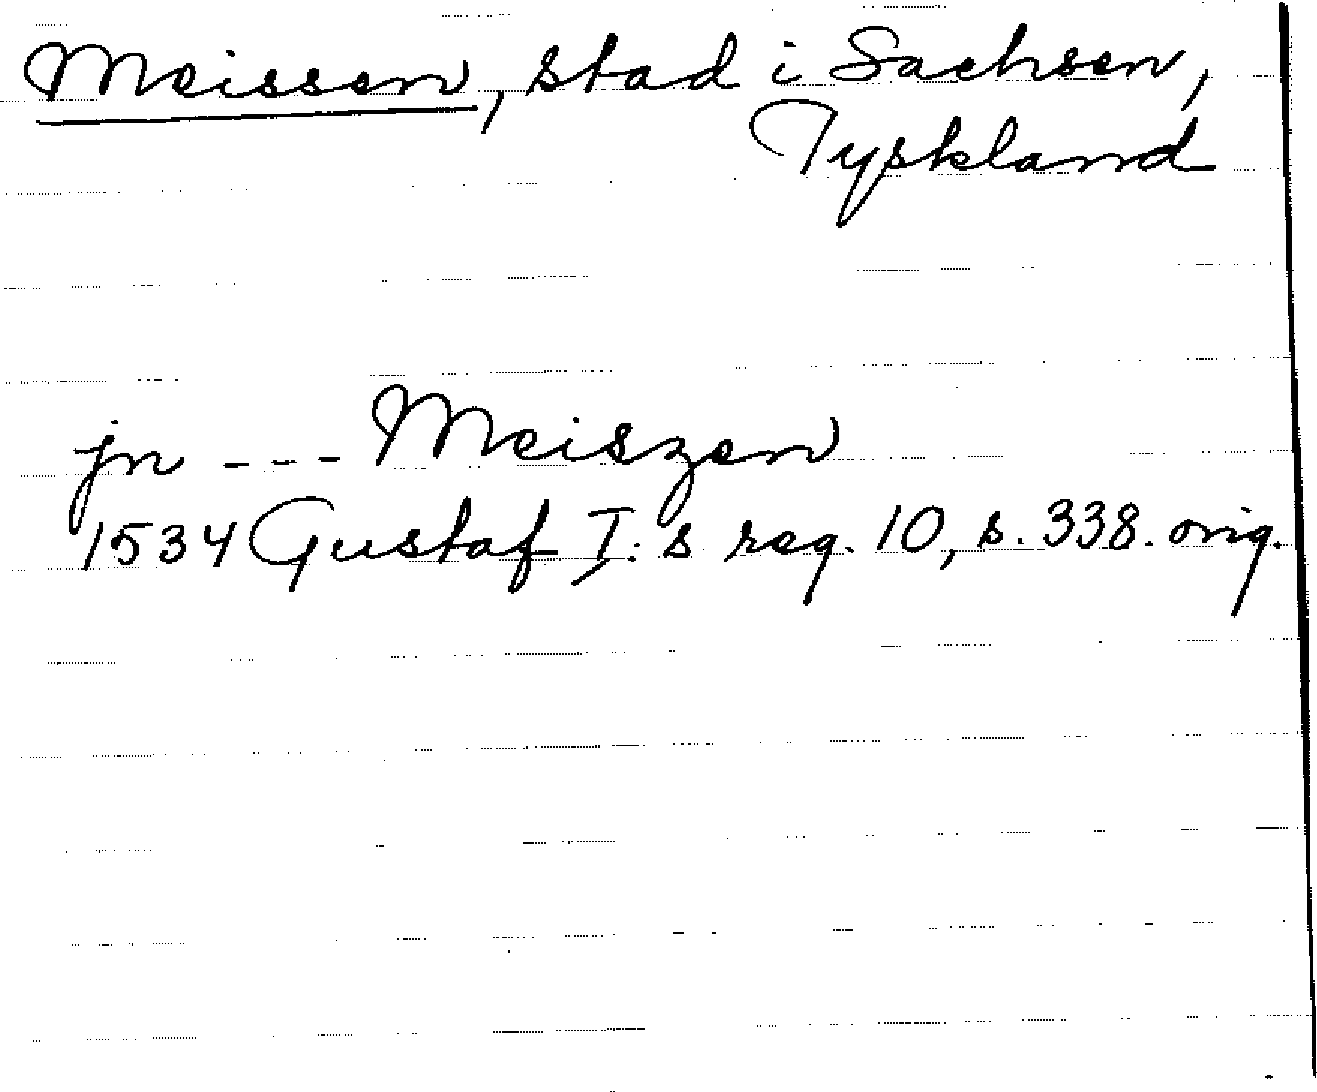 Meissen, stad i Sachsen,
Tyskland
jn --- Meiszen
1534 Gustaf I:s reg. 10, s. 338. orig.